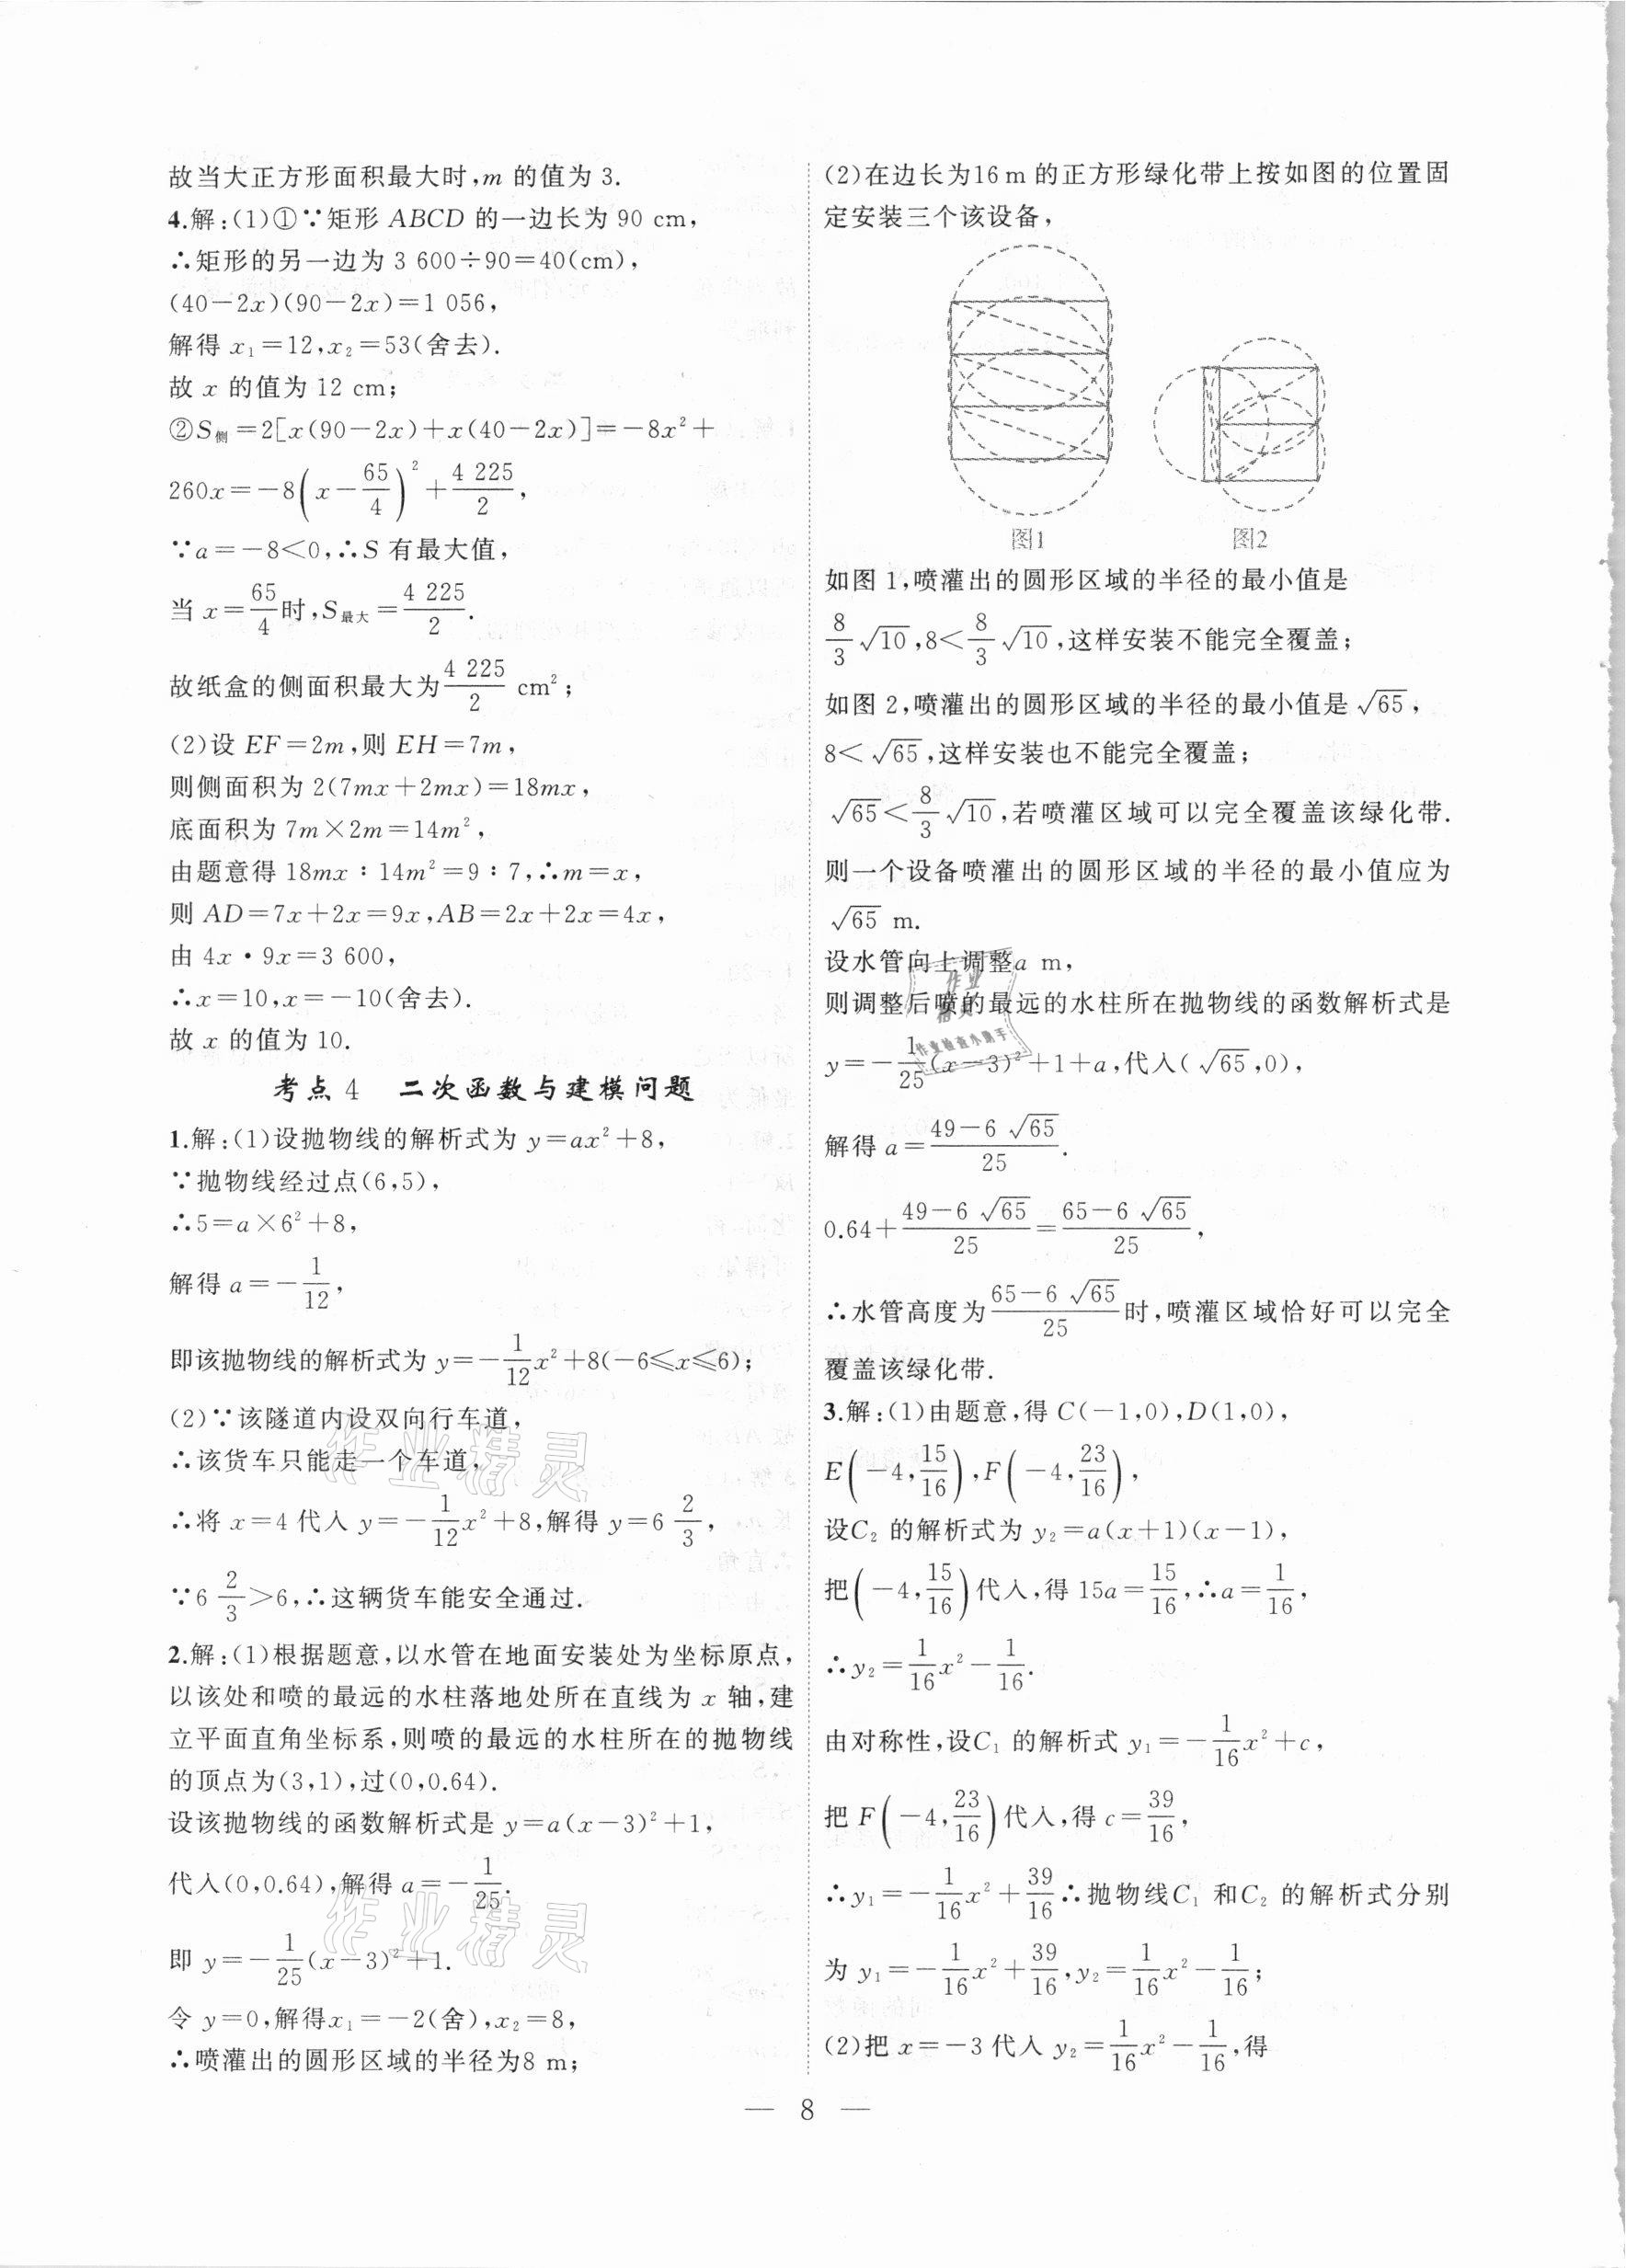 故当大正方形面积最大时,m 的值为 3.
4.解:(1)①∵矩形 ABCD 的一边长为 90 cm,
∴矩形的另一边为 3 600÷90=40(cm),
(40-2x)(90-2x)=1 056,
解得 x₁=12,x₂=53(舍去).
故 x 的值为 12 cm;
②S侧=2[x(90-2x)+x(40-2x)]=-8x²+
260x=-8(x-65/4)²+4 225/2,
∵a=-8<0,∴S 有最大值,
当 x=65/4时,S最大=4 225/2.
故纸盒的侧面积最大为4 225/2 cm²;
(2)设 EF=2m,则 EH=7m,
则侧面积为 2(7mx+2mx)=18mx,
底面积为 7m×2m=14m²,
由题意得 18mx∶14m²=9∶7,∴m=x,
则 AD=7x+2x=9x,AB=2x+2x=4x,
由 4x·9x=3 600,
∴x=10,x=-10(舍去).
故 x 的值为 10.
考点 4 二次函数与建模问题
1.解:(1)设抛物线的解析式为 y=ax²+8,
∵抛物线经过点(6,5),
∴5=a×6²+8,
解得 a=-1/12,
即该抛物线的解析式为 y=-1/12x²+8(-6≤x≤6);
(2)∵该隧道内设双向行车道,
∴该货车只能走一个车道,
∴将 x=4 代入 y=-1/12x²+8,解得 y=6 2/3,
∵6 2/3>6,∴这辆货车能安全通过.
2.解:(1)根据题意,以水管在地面安装处为坐标原点,
以该处和喷的最远的水柱落地处所在直线为 x 轴,建
立平面直角坐标系,则喷的最远的水柱所在的抛物线
的顶点为(3,1),过(0,0.64).
设该抛物线的函数解析式是 y=a(x-3)²+1,
代入(0,0.64),解得 a=-1/25.
即 y=-1/25(x-3)²+1.
令 y=0,解得x₁=-2(舍),x₂=8,
∴喷灌出的圆形区域的半径为8 m;
(2)在边长为16 m 的正方形绿化带上按如图的位置固
定安装三个该设备,
图1 图2
如图 1,喷灌出的圆形区域的半径的最小值是
8/3√10,8<8/3√10,这样安装不能完全覆盖;
如图 2,喷灌出的圆形区域的半径的最小值是√65,
8<√65,这样安装也不能完全覆盖;
√65<8/3√10,若喷灌区域可以完全覆盖该绿化带.
则一个设备喷灌出的圆形区域的半径的最小值应为
√65 m.
设水管向上调整a m,
则调整后喷的最远的水柱所在抛物线的函数解析式是
y=-1/25(x-3)²+1+a,代入(√65,0),
解得 a=(49-6√65)/25.
0.64+(49-6√65)/25=(65-6√65)/25,
∴水管高度为(65-6√65)/25时,喷灌区域恰好可以完全
覆盖该绿化带.
3.解:(1)由题意,得 C(-1,0),D(1,0),
E(-4,15/16),F(-4,23/16),
设C₂ 的解析式为 y₂=a(x+1)(x-1),
把(-4,15/16)代入,得 15a=15/16,∴a=1/16,
∴y₂=1/16x²-1/16.
由对称性,设C₁ 的解析式 y₁=-1/16x²+c,
把 F(-4,23/16)代入,得 c=39/16,
∴y₁=-1/16x²+39/16∴抛物线C₁ 和C₂ 的解析式分别
为 y₁=-1/16x²+39/16,y₂=1/16x²-1/16;
(2)把 x=-3 代入 y₂=1/16x²-1/16,得
— 8 —
作业精灵
作业精灵
作业
精灵
作业检查小助手